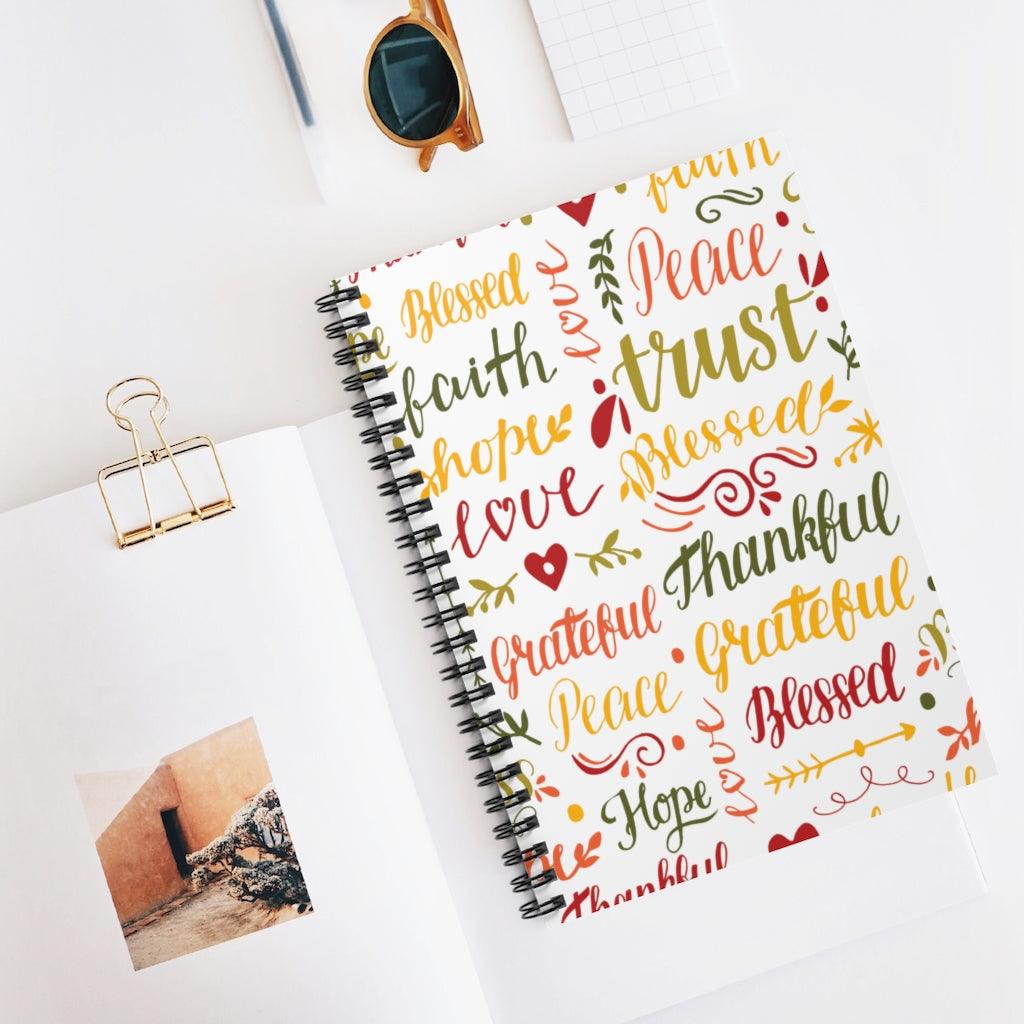 faith
Peace
Blessed
love
trust
faith
Blessed
hope
love
Thankful
Grateful
Grateful
Peace
Blessed
love
Hope
Thankful